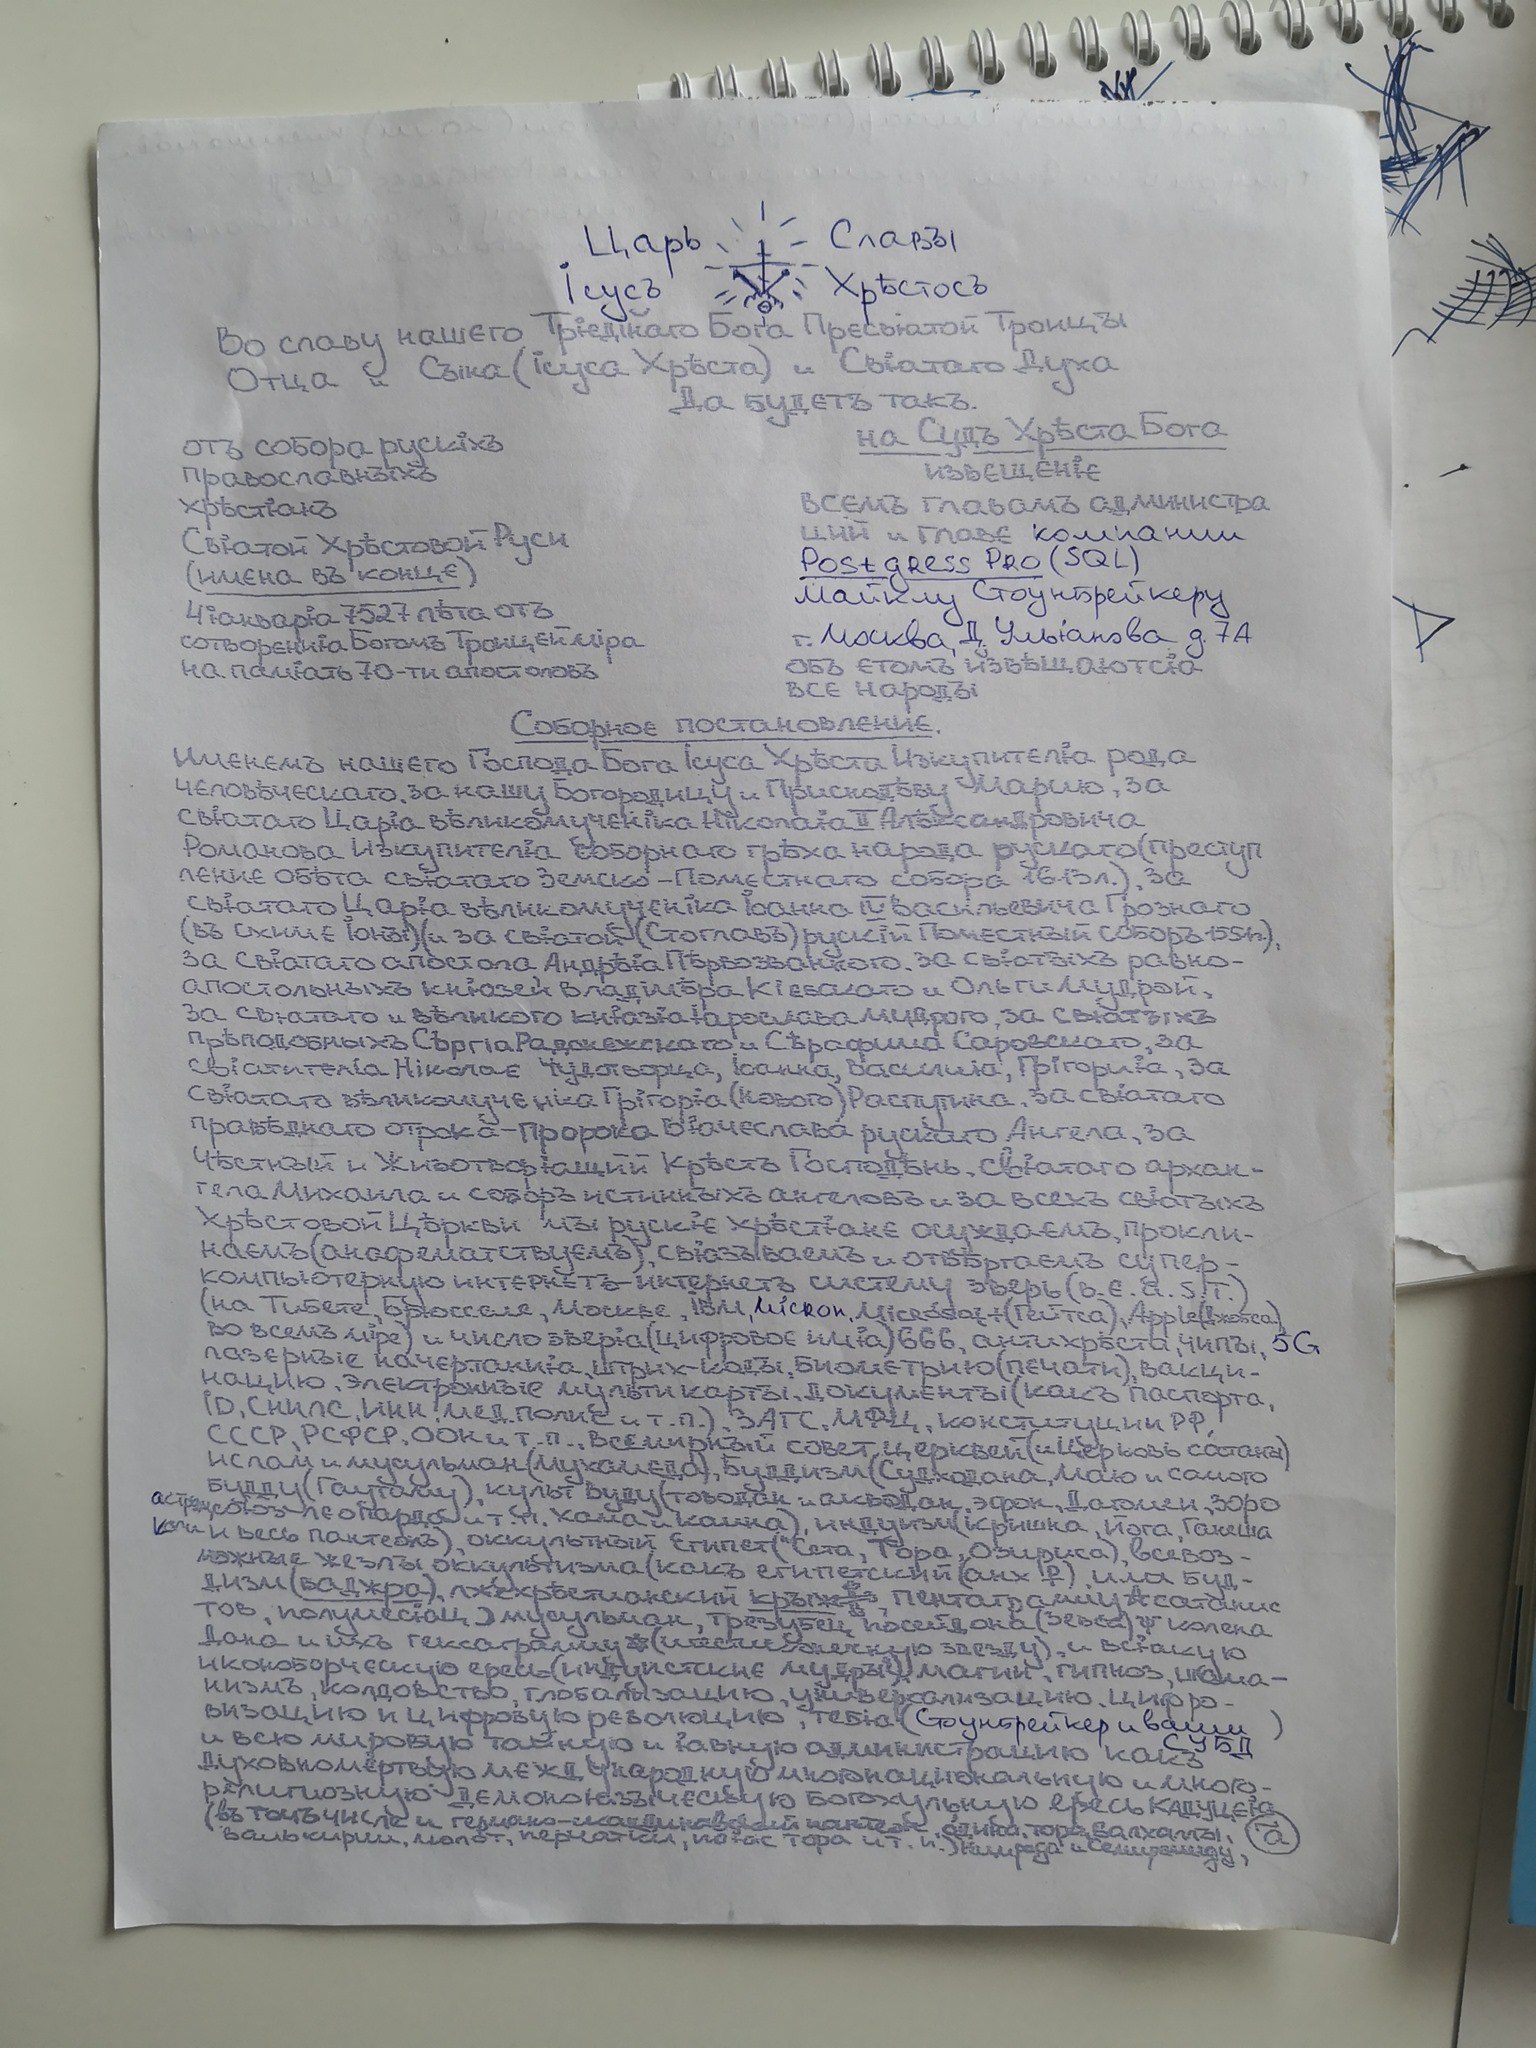 Царь Славы
Ісусъ Хрѣстосъ
Во славу нашего Бога Пресвіатой Троицы
Отца и Сына (Ісуса Хрѣста) и Свіатаго Духа
Да будетъ такъ.
отъ собора рускіхъ
православныхъ
хрѣстіанъ
Свіатой Хрѣстовой Руси
(имена въ конце)
4 іанваріа 7527 лѣта отъ
сотвореніа Богомъ Троицей міра
на паміать 70-ти апостоловъ
на Судъ Хрѣста Бога
извещеніе
всемъ главамъ администра
ций и главе компании
Postgress PRO (SQL)
Майклу Стоунбрейкеру
г. Москва, Д. Ульіанова д. 7А
объ етомъ извѣщаютсіа
все народы
Соборное постановление.
Именемъ нашего Господа Бога Ісуса Хрѣста Изкупителіа рода
человѣческаго, за нашу Богородицу и Приснодѣву Марию, за
свіатаго Царіа вѣликомученіка Ніколаіа II Алѣксандровича
Романова Изкупителіа соборнаго грѣха народа рускаго (преступ
ление обѣта свіатаго Земско-Поместнаго собора 1613 л.), за
свіатаго Царіа вѣликомученіка Іоанна IV Васильевича Грознаго
(въ схиме Іоны) (и за свіатой (Стоглавъ) рускій Поместный соборъ 1551л),
за свіатаго апостола Андрѣіа Пѣрвозванного, за свіатыхъ равно-
апостольныхъ кніазей Владімѣра Кіевскаго и Ольги Мудрой,
за свіатаго и вѣликого кніазіа Іарослава Мудрого, за свіатыхъ
прѣподобныхъ Сѣргіа Радонежскаго и Сѣрафима Саровскаго, за
свіатителіа Ніколае Чудотворца, Іоанна, Василиіа, Грігориіа, за
свіатаго вѣликомученіка Грігоріа (Нового) Распутина, за свіатаго
правѣднаго отрока-пророка Віачеслава рускаго Ангела, за
Чѣстный и Животворіащий Крѣстъ Господѣнь, свіатаго архан-
гела Михаила и соборъ истинныхъ ангеловъ и за всехъ свіатыхъ
Хрѣстовой Цѣркви мы рускіе хрѣстіане осуждаемъ, прокли-
наемъ (анафематствуемъ), свіазываемъ и отвѣргаемъ супер-
компьютерную интернетъ-интернетъ систему зверь (b.E.a.S.T.)
(на Тибете, Брюсселе, Москве, IBM, micron, Microsoft (Гейтса), Apple (Джобса)
во всемъ міре) и число зверіа (цифровое иміа) 666, антихрѣста, чипы, 5G
лазерные начертаниіа, штрих-коды, биометрию (печати), вакци-
нацию, электронные мульти карты, документы (какъ паспорта,
ID, СНИЛС, ИНН, мед. полис и т.п.), ЗАГС, МФЦ, конституции РФ,
СССР, РСФСР, ООН и т.п., всемирный совет церквей (и церковь сатаны)
ислам и мусульман (Мухамеда), Буддизм (Судходана, Маю и самого
Будду (Гаутаму), культ вуду
союз леопарда и т.п. Хама и Каина), индуизм (Кришна, йога, Ганеша
и весь пантеонъ), оккультный Египет (Сета, Гора, Озириса), всевоз-
можные жезлы оккультизма (какъ египетский (анх ☥) или буд-
дизм (ваджра), лжехрѣстианский крыж, пентаграмму сатанис
тов, полумесіац ☽ мусульман, трезубец посейдона (Зевса) Ψ колена
Дана и ихъ гексаграмму ✡ (шестиконечную звезду), и всіакую
иконоборческую ересь (индуистские мудры), магии, гипноз, шама-
низмъ, колдовство, глобализацию, универсализацию, цифро-
визацию и цифровую революцию, тебіа (Стоунбрейкер и ваши СУБД)
и всю мировую тайную и іавную администрацию какъ
духовномёртвую международную многонациональную и много-
религиозную демоноіазыческую богохульную ересь Кадуцеіа
(въ томъ числе и германо-скандинавский пантеон, одина, тора, валхаллы,
валькирии, молот, перчатки, поіас тора и т.п.) Нимрода и Семирамиду,
а